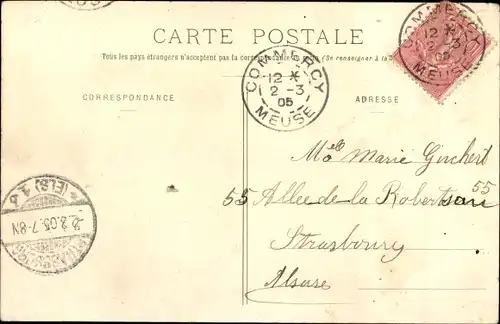 CARTE POSTALE
Tous les pays étrangers n'acceptent pas la correspondance au recto (Se renseigner à la
CORRESPONDANCE
ADRESSE
COMMERCY
12 *
2 - 3
05
MEUSE
COMMERCY
12
2 - 3
05
MEUSE
Melle Marie
55 Allée de la Robertsau 55
Strasbourg
Alsace
(ELS) 1.b
2.3.05.7-8N